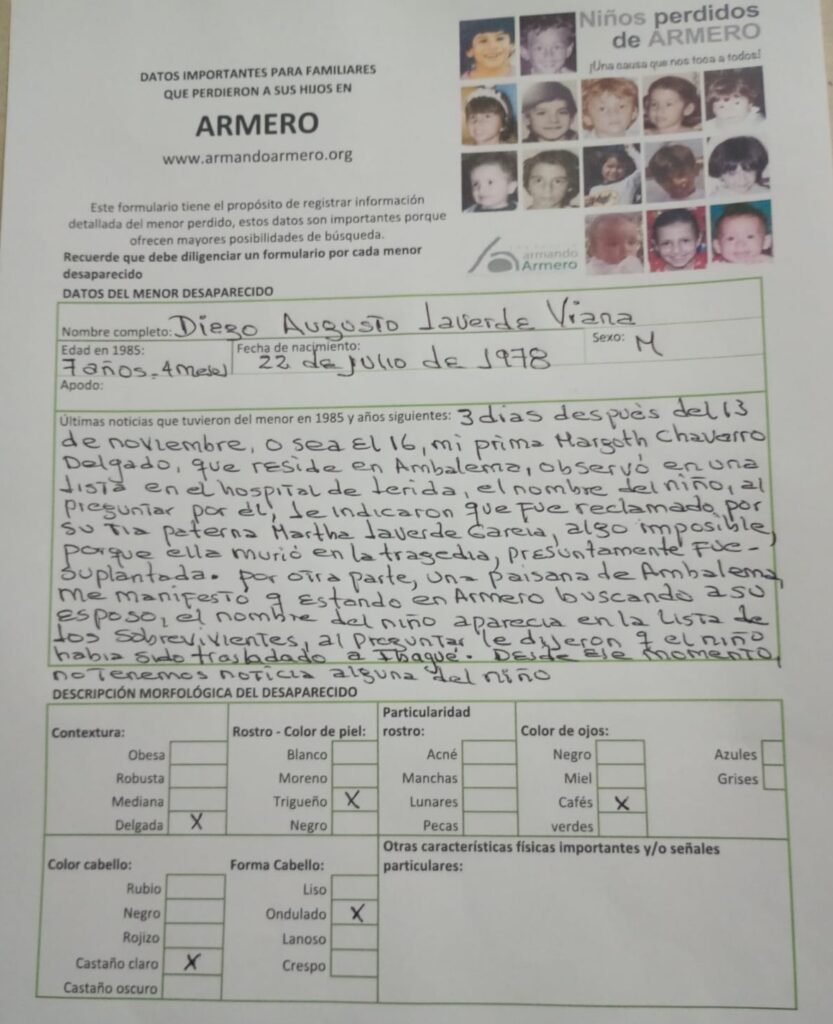 DATOS IMPORTANTES PARA FAMILIARES
QUE PERDIERON A SUS HIJOS EN
ARMERO
www.armandoarmero.org
Niños perdidos
de ARMERO
¡Una causa que nos toca a todos!
Este formulario tiene el propósito de registrar información
detallada del menor perdido, estos datos son importantes porque
ofrecen mayores posibilidades de búsqueda.
Recuerde que debe diligenciar un formulario por cada menor
desaparecido
armando
Armero
DATOS DEL MENOR DESAPARECIDO
Nombre completo: Diego Augusto Laverde Viana
Edad en 1985: 7 años - 4 meses
Fecha de nacimiento: 22 de julio de 1978
Sexo: M
Apodo:
Últimas noticias que tuvieron del menor en 1985 y años siguientes: 3 días después del 13
de noviembre, o sea El 16, mi prima Margoth Chavarro
Delgado, que reside en Ambalema, observó en una
lista en el hospital de Lerida, el nombre del niño, al
preguntar por él, le indicaron que fue reclamado por
su tia paterna Martha Laverde Garcia, algo imposible,
porque ella murió en la tragedia, presuntamente fue-
suplantada. por otra parte, una paisana de Ambalema,
me manifestó q estando en Armero buscando a su
esposo, el nombre del niño aparecia en la Lista de
los sobrevivientes, al preguntar le dijeron q el niño
habia sido trasladado a Ibagué. Desde ese momento,
no tenemos noticia alguna del niño
DESCRIPCIÓN MORFOLÓGICA DEL DESAPARECIDO
Contextura:
Obesa
Robusta
Mediana
Delgada X
Rostro - Color de piel:
Blanco
Moreno
Trigueño X
Negro
Particularidad
rostro:
Acné
Manchas
Lunares
Pecas
Color de ojos:
Negro
Miel
Cafés X
verdes
Azules
Grises
Color cabello:
Rubio
Negro
Rojizo
Castaño claro X
Castaño oscuro
Forma Cabello:
Liso
Ondulado X
Lanoso
Crespo
Otras características físicas importantes y/o señales
particulares: